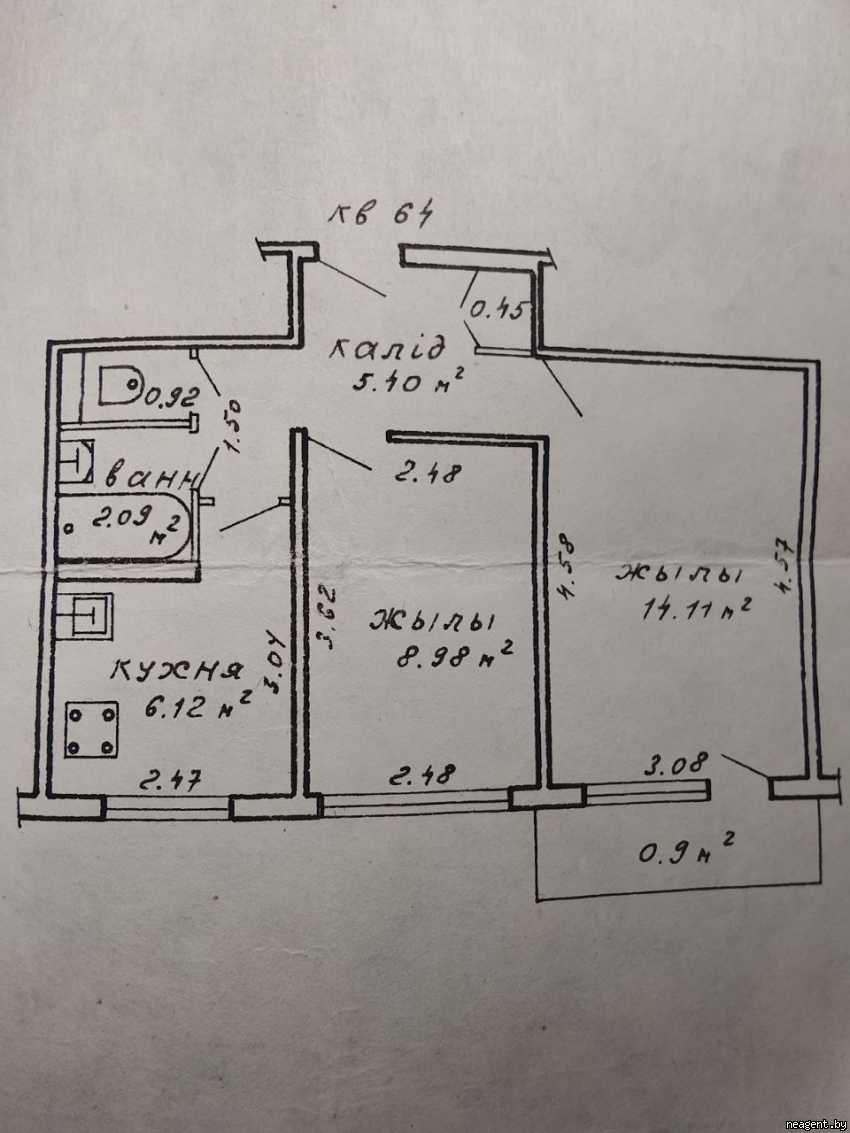 кв 64
0.45
калід
5.40 м²
0.92
1.50
ванн
2.48
2.09
м²
4.58
4.57
жылы
14.11 м²
3.62
жылы
8.98 м²
3.04
кухня
6.12 м²
2.47
2.48
3.08
0.9 м²
neagent.by